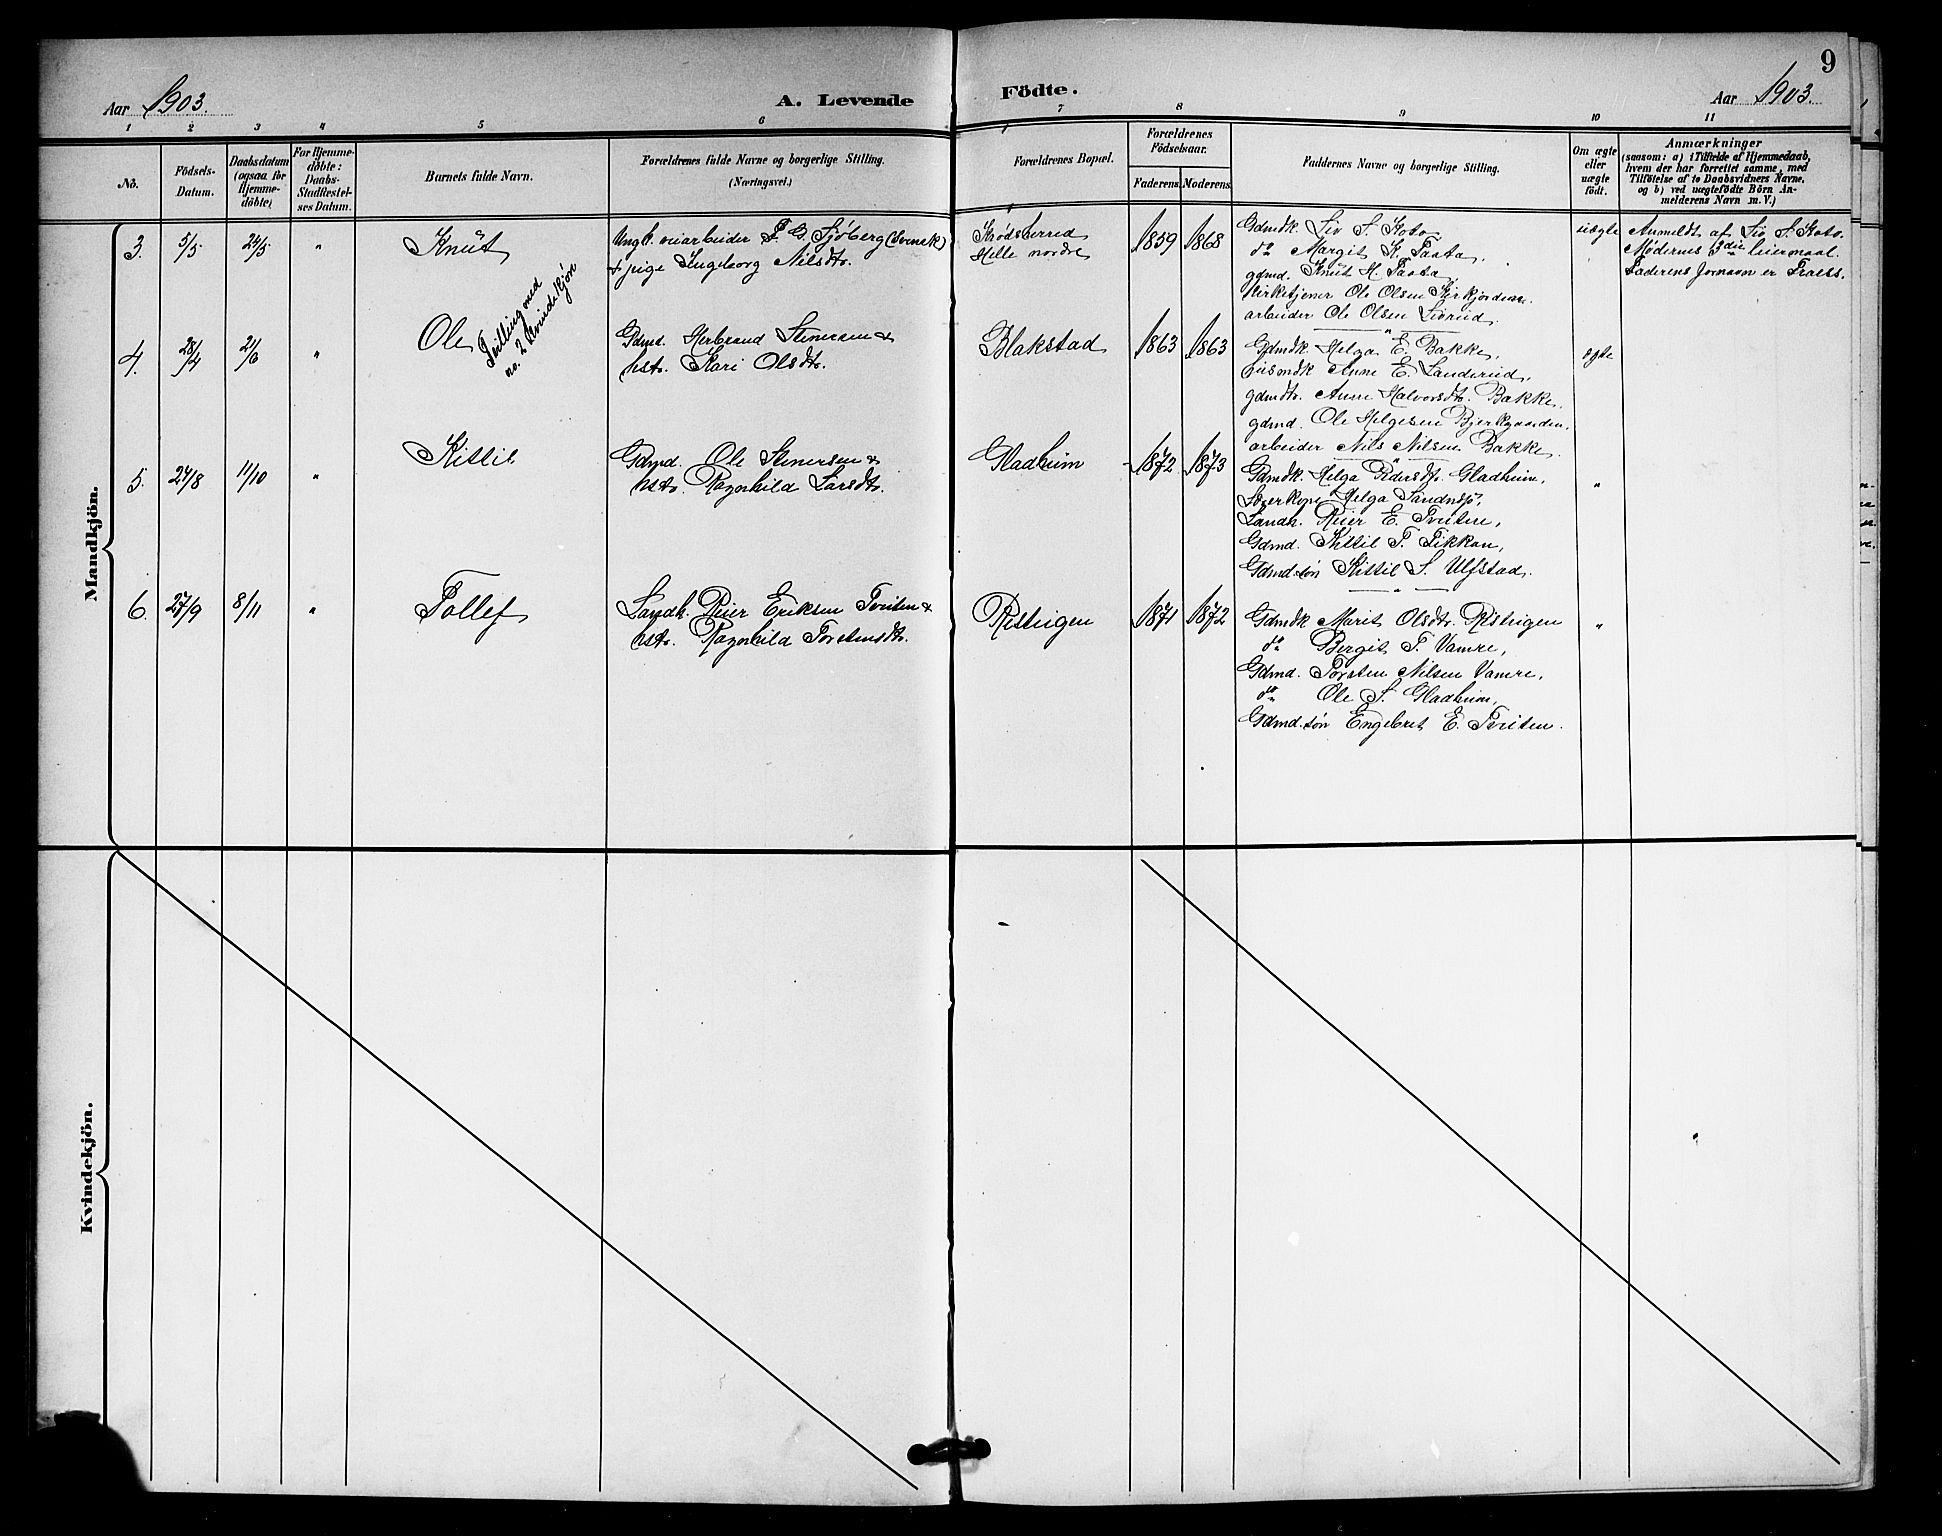 9
Aar 1903.
A. Levende Födte.
Aar 1903.
1 2 3 4 5 6 7 8 9 10 11
No.
Födsels-
Datum.
Daabsdatum
(ogsaa for
Hjemme-
döbte)
For Hjemme-
döbte:
Daabs-
Stadfæstel-
ses Datum.
Barnets fulde Navn.
Forældrenes fulde Navne og borgerlige Stilling.
(Næringsvei.)
Forældrenes Bopæl.
Forældrenes
Födselsaar.
Faderens. Moderens.
Faddernes Navne og borgerlige Stilling.
Om ægte
eller
uægte
födt.
Anmærkninger
(saasom: a) i Tilfælde af Hjemmedaab,
hvem der har forrettet samme, med
Tilföielse af to Daabsvidners Navne,
og b) ved uægtefödte Börn An-
melderens Navn m. V.)
Mandkjön.
3. 5/5 24/5 " Knut
Ungk. veiarbeider P. G. Sjöberg (Svensk)
& pige Ingeborg Nilsdtr.
Krödsherred
Helle nordre
1859 1868
Gdmdk. Liv S. Kobo
do Margit K. Taata,
gdmd. Knut H. Taata,
kirketjener Ole Olsen Kirkjordene.
arbeider Ole Olsen Livrud.
uægte
Anmeldt af Liv S. Kobo.
Moderens 3die leiermaal.
Faderens fornavn er
4. 28/4 21/6 " Ole
Tvilling med
no. 2 Kvindekjøn
Gdmd. Herbrand Stenersen &
hstr. Kari Olsdtr.
Blakstad
1863 1863
Gdmdk. Helga E. Bakke,
husmdk Anne E. Sanderud,
gdmdtr. Anne Halvorsdtr. Bakke,
gdmd. Ole Helgesen Bjerkgaarden,
arbeider Nils Nilsen Bakke.
ægte
5. 24/8 11/10 " Kittil
Gdmd. Ole Stenersen &
hstr. Ragnhild Larsdtr.
Gladheim
1872 1873
Gdmdk. Helga Pedersdtr. Gladheim,
Helga
Landh. Reier E. Tveiten,
Gdmd. Kittil T. Fikkan,
Gdmd.søn Kittil S. Ulfstad.
"
6. 27/9 8/11 " Tollef
Landh. Reier Eriksen Tveiten &
hstr. Ragnhild Torstensdtr.
Risteigen
1871 1872
Gdmdk Marit Olsdtr. Risteigen
do Bergit T. Vamre,
Gdmd. Torsten Nilsen Vamre,
do Ole S. Gladheim,
Gdmd.søn Engebret E. Tveiten.
"
Kvindekjön.